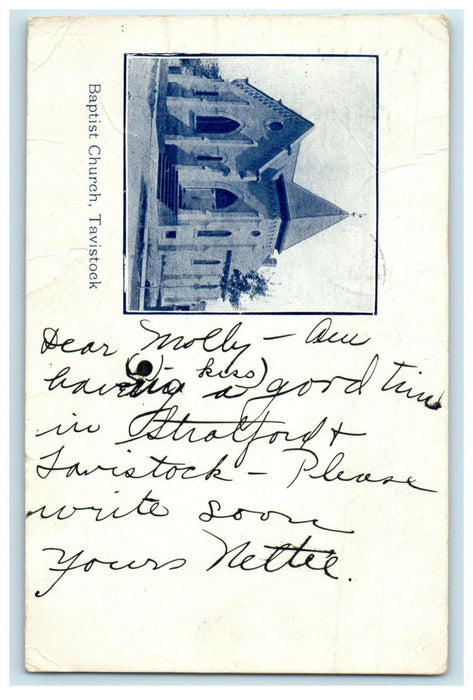 Baptist Church, Tavistock
Dear Molly – Am
( kiss)
having a good time
in Stratford +
Tavistock – Please
write soon
Yours Nettie.